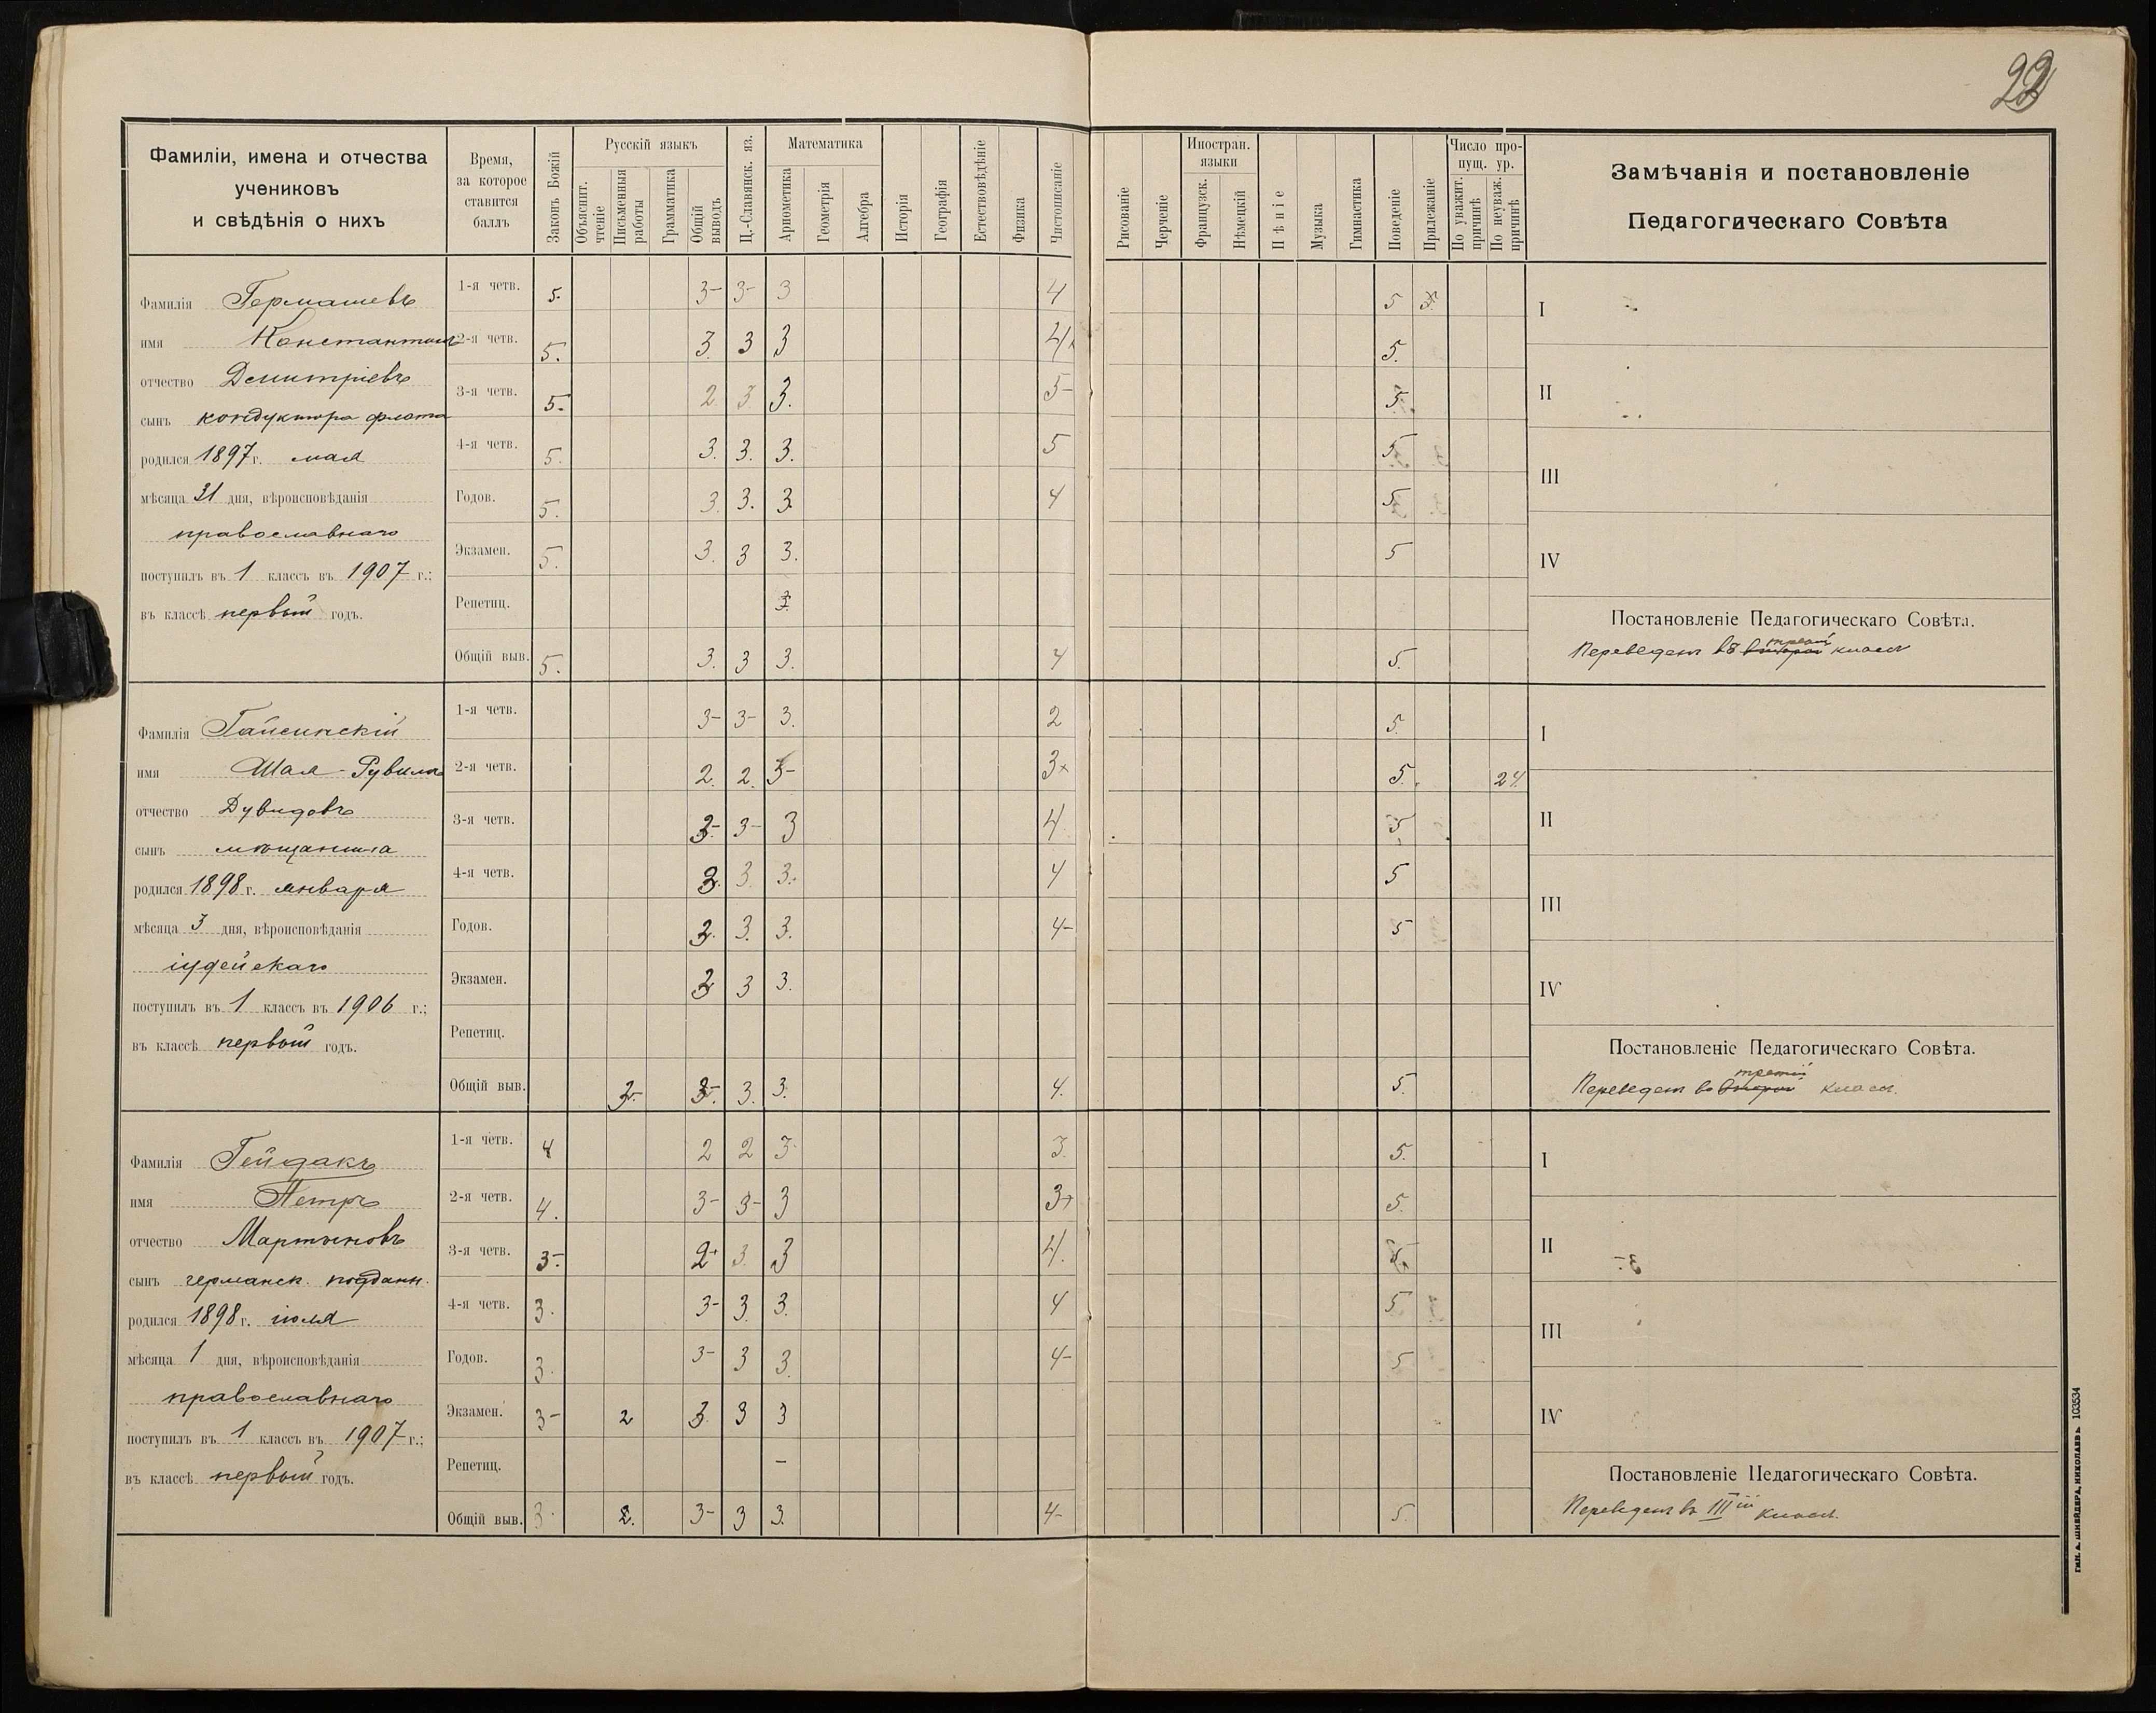 22
Фамиліи, имена и отчества
учениковъ
и свѣдѣнія о нихъ
Время,
за которое
ставится
баллъ
Законъ Божій
Русскій языкъ
Объяснит. чтеніе
Письменныя работы
Грамматика
Общій выводъ
Ц.-Славянск. яз.
Математика
Ариѳметика
Геометрія
Алгебра
Исторія
Географія
Естествовѣдѣніе
Физика
Чистописаніе
Рисованіе
Черченіе
Иностран. языки
Французск.
Нѣмецкій
Пѣніе
Музыка
Гимнастика
Поведеніе
Прилежаніе
Число пропущ. ур.
По уважит. причинѣ
По неуваж. причинѣ
Замѣчанія и постановленіе
Педагогическаго Совѣта
Фамилія Гермашевъ
имя Константинъ
отчество Дмитріевъ
сынъ кондуктора флота
родился 1897 г. мая
мѣсяца 31 дня, вѣроисповѣданія
православнаго
поступилъ въ 1 классъ въ 1907 г.;
въ классѣ первый годъ.
1-я четв. 5. 3- 3- 3 4 5
2-я четв. 5. 3. 3 3 4 5.
3-я четв. 5. 2. 3. 3. 5- 5.
4-я четв. 5. 3. 3. 3. 5 5
Годов. 5. 3. 3. 3. 4 5
Экзамен. 5. 3. 3 3. 5
Репетиц. 3.
Общій выв. 5. 3. 3 3. 4 5.
I
II
III
IV
Постановленіе Педагогическаго Совѣта.
третій
Переведенъ въ второй классъ
Фамилія Гайсинскій
имя Шая-Рувимъ
отчество Дувидовъ
сынъ мѣщанина
родился 1898 г. января
мѣсяца 3 дня, вѣроисповѣданія
іудейскаго
поступилъ въ 1 классъ въ 1906 г.;
въ классѣ первый годъ.
1-я четв. 3- 3- 3. 2 5.
2-я четв. 2. 2. 3- 3+ 5. 24.
3-я четв. 3- 3- 3 4 5
4-я четв. 3. 3. 3. 4 5
Годов. 3. 3. 3. 4- 5
Экзамен. 3 3 3.
Репетиц.
Общій выв. 2. 3-. 3. 3. 4. 5.
I
II
III
IV
Постановленіе Педагогическаго Совѣта.
третій
Переведенъ во второй классъ.
Фамилія Гейдакъ
имя Петръ
отчество Мартыновъ
сынъ германск. поддан.
родился 1898 г. іюля
мѣсяца 1 дня, вѣроисповѣданія
православнаго
поступилъ въ 1 классъ въ 1907 г.;
въ классѣ первый годъ.
1-я четв. 4 2 2 3 3. 5.
2-я четв. 4. 3- 3- 3 3+ 5.
3-я четв. 3- 2+ 3. 3 4.
4-я четв. 3. 3- 3. 3. 4 5
Годов. 3. 3- 3 3. 4- 5
Экзамен. 3- 2 3. 3 3
Репетиц. -
Общій выв. 3 2. 3- 3 3. 4- 5.
I
II
III
IV
Постановленіе Педагогическаго Совѣта.
Переведенъ въ IIIій классъ.
тип. А. ШНЕЙДЕРА, НИКОЛАЕВЪ 103534